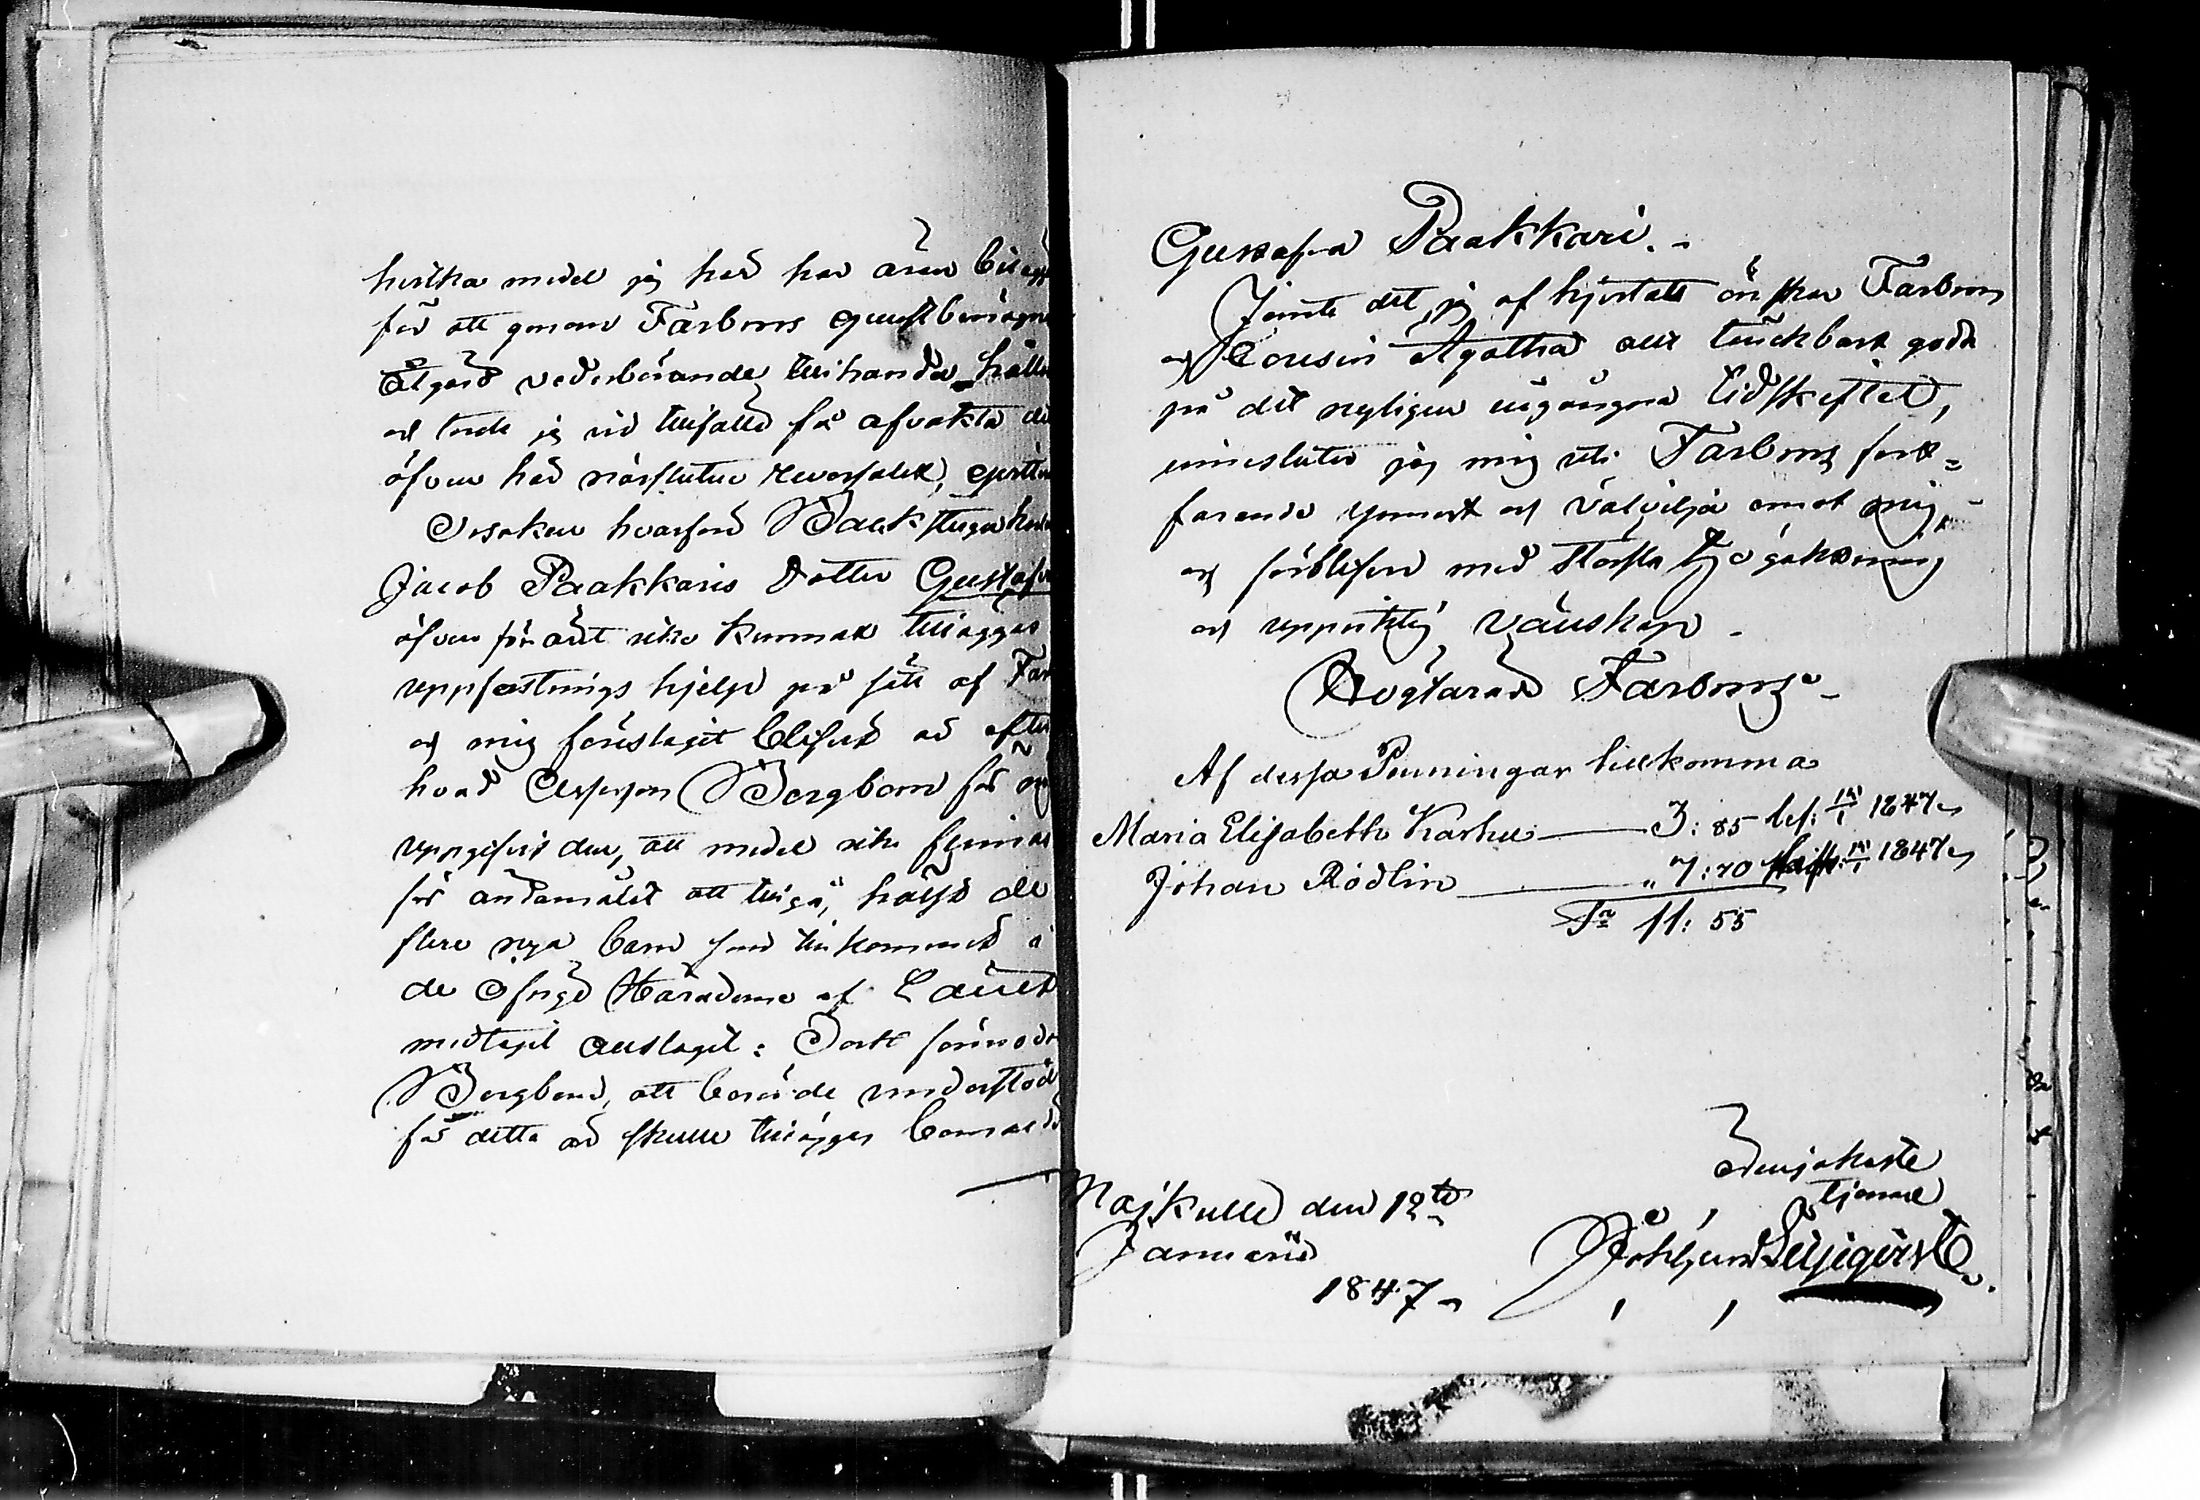 hvilka medel jag här har äran bilägga
för att genom Farbrors gunstbenägna
åtgärd vederbörande tillhanda hållas
och torde jag vid tillfälle få afvakta de
öfver här närslutne Reversalet,
Orsaken hvarföre Backstugu
Jacob Paakkaris dotter Gustafva
äfven för året icke kunnat tilläggas
uppfostrings hjelp på sätt af Far
och mig föreslaget blifvit är efter
hvad Assessor Bergbom för mig
uppgifvit den, att medel icke funnits
för ändamålet att tillgå, hälst de
flere nya barn som tillkommit i
de öfrige Häraderne af Länet
medtagit anslaget: Dock förmodar
Bergbom, att berörde understöd
för detta år skulle tilläggas bemälde
Gustafva Paakkari.
Jemte det jag af hjertat önskar Farbror
och Cousin Agatha allt tänckbart godt
på det nyligen ingångna tidskiftet,
innesluter jag mig uti Farbrors fort=
farande ynnest och välvilja emot mig,
och förblifver med största högaktning
och uppriktig vänskap
Högtärade Farbrors
Af dessa Penningar tillkomma
Maria Elisabeth Karhu 3: 85 lef: 1847
Johan Rödlin " 7: 70 1847
Sa 11: 55
Majkulla den 12te
Januarii
1847
ödmjukaste
tjenare